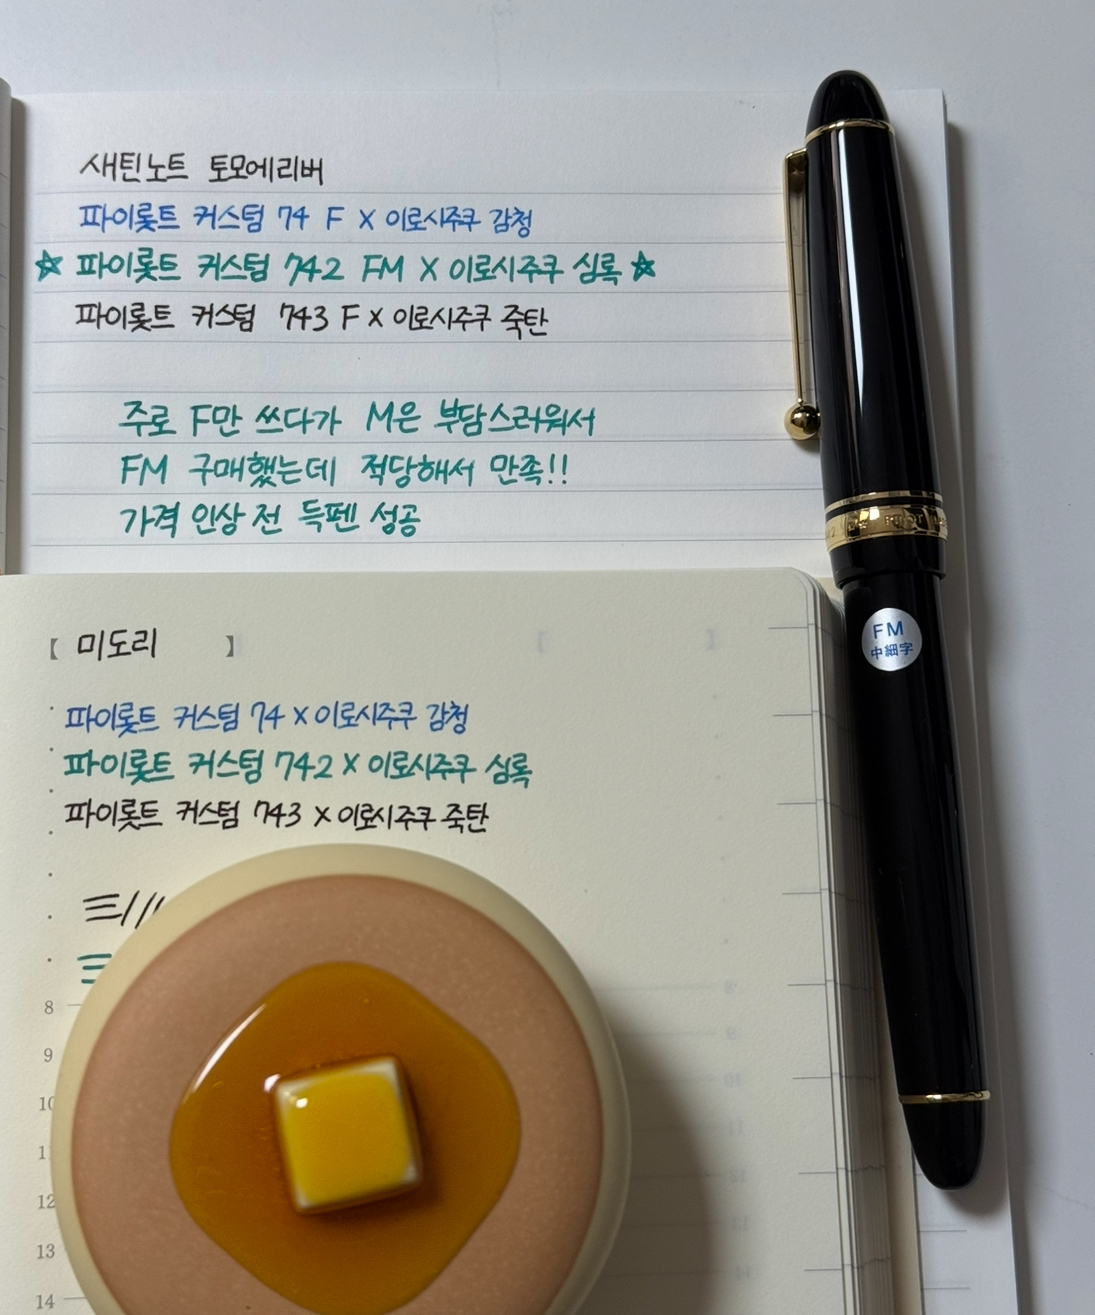 새틴노트 토모에리버
파이롯트 커스텀 74 F X 이로시주쿠 감청
☆ 파이롯트 커스텀 742 FM X 이로시주쿠 심록 ☆
파이롯트 커스텀 743 F X 이로시주쿠 죽탄
주로 F만 쓰다가 M은 부담스러워서
FM 구매했는데 적당해서 만족!!
가격 인상 전 득펜 성공
FM
中細字
【 미도리 】
파이롯트 커스텀 74 X 이로시주쿠 감청
파이롯트 커스텀 742 X 이로시주쿠 심록
파이롯트 커스텀 743 X 이로시주쿠 죽탄
8
9
10
11
12
13
14